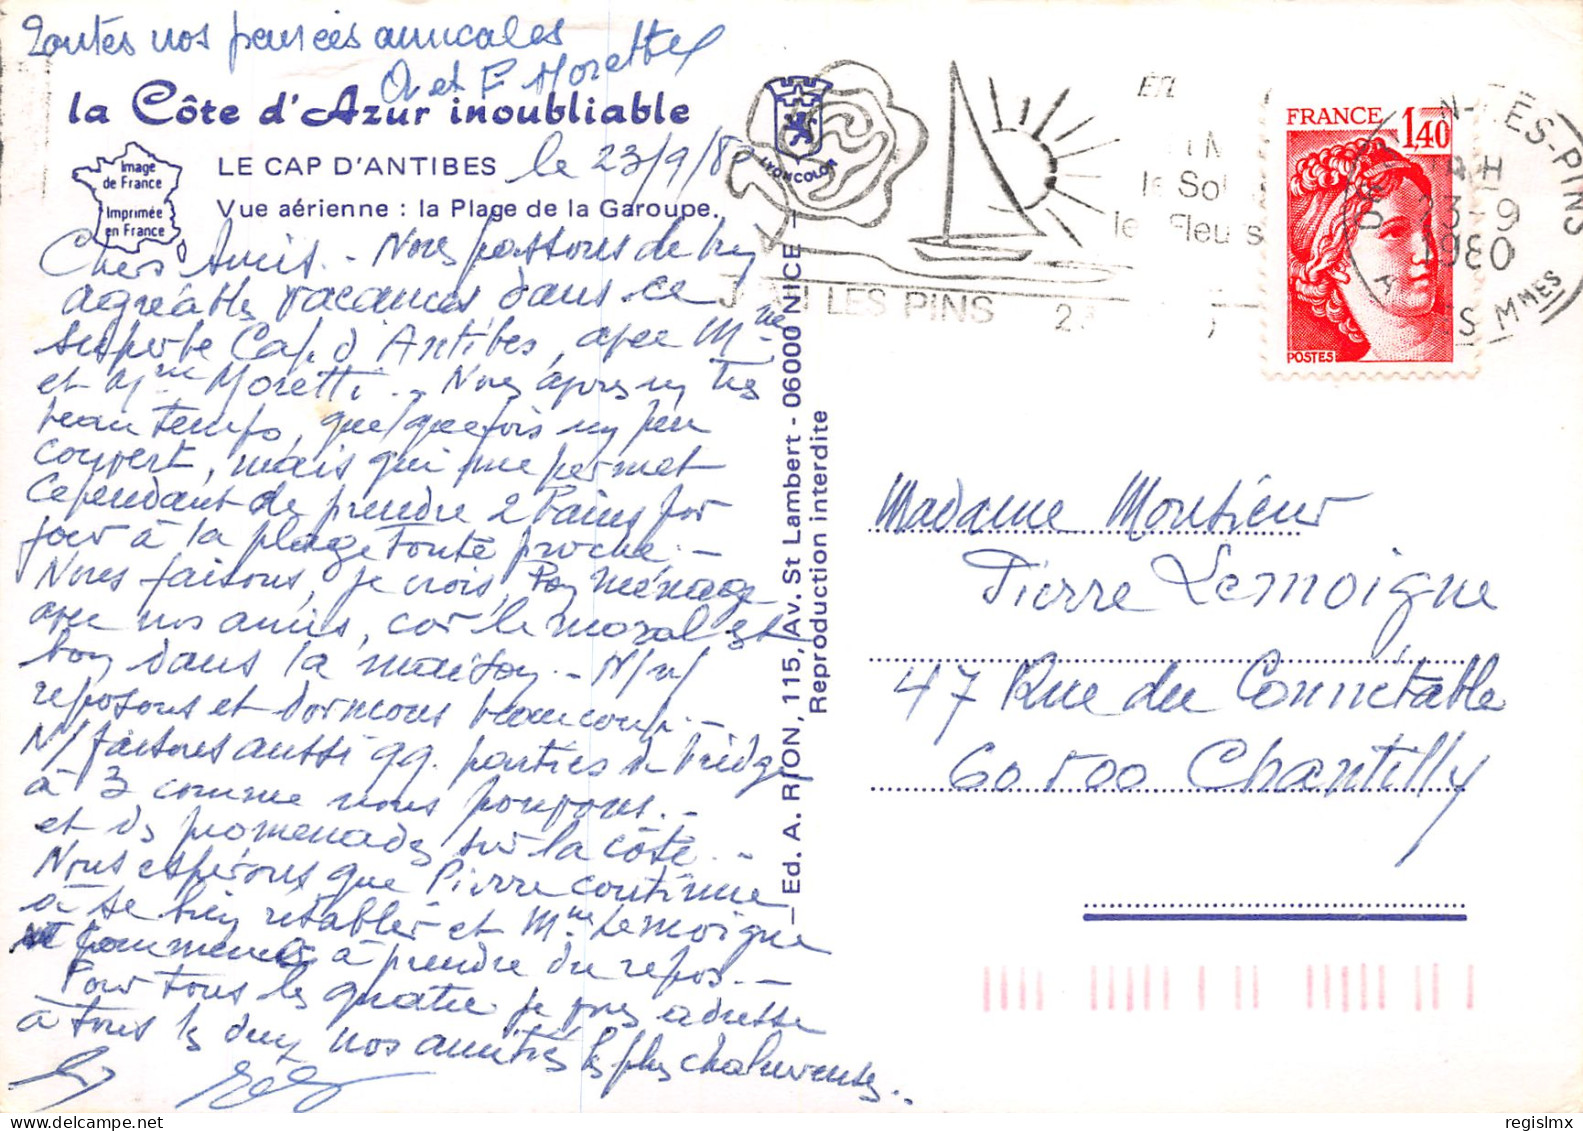 Toutes nos pensées amicales
O et F Moretti
la Côte d'Azur inoubliable
Image
de France
Imprimée
en France
LE CAP D'ANTIBES le 23/9/80
Vue aérienne : la Plage de la Garoupe.
Chers Amis. - Nous passons de
agréables vacances dans ce
superbe Cap d'Antibes, avec Mme
et Moretti. - Nous un très
beau temps, quelquefois un peu
couvert, mais qui me permet
cependant de prendre 2 bains par
jour à la plage toute proche. -
Nous faisons, je crois, bon ménage
avec nos amis, car le moral est
bon dans la maison. - N/ n/
reposons et dormons beaucoup. -
N/ faisons aussi qq. parties de bridge
à 3 comme nous pouvons. -
et des promenades sur la côte. -
Nous espérons que Pierre continue
à se bien rétablir et Mme Lemoigne
commence à prendre du repos. -
Pour tous les quatre je vous adresse
à tous les deux nos amitiés les plus chaleureuses..
YONCOLOR
Ed. A. RION, 115, Av. St Lambert - 06000 NICE
Reproduction interdite
le Sol
les Fleurs
JUAN LES PINS
FRANCE 1,40
POSTES
N-LES-PINS
23-9
1980
A MMES
Madame Monsieur
Pierre Lemoigne
47 Rue du Connétable
60500 Chantilly
regislmx
delcampe.net